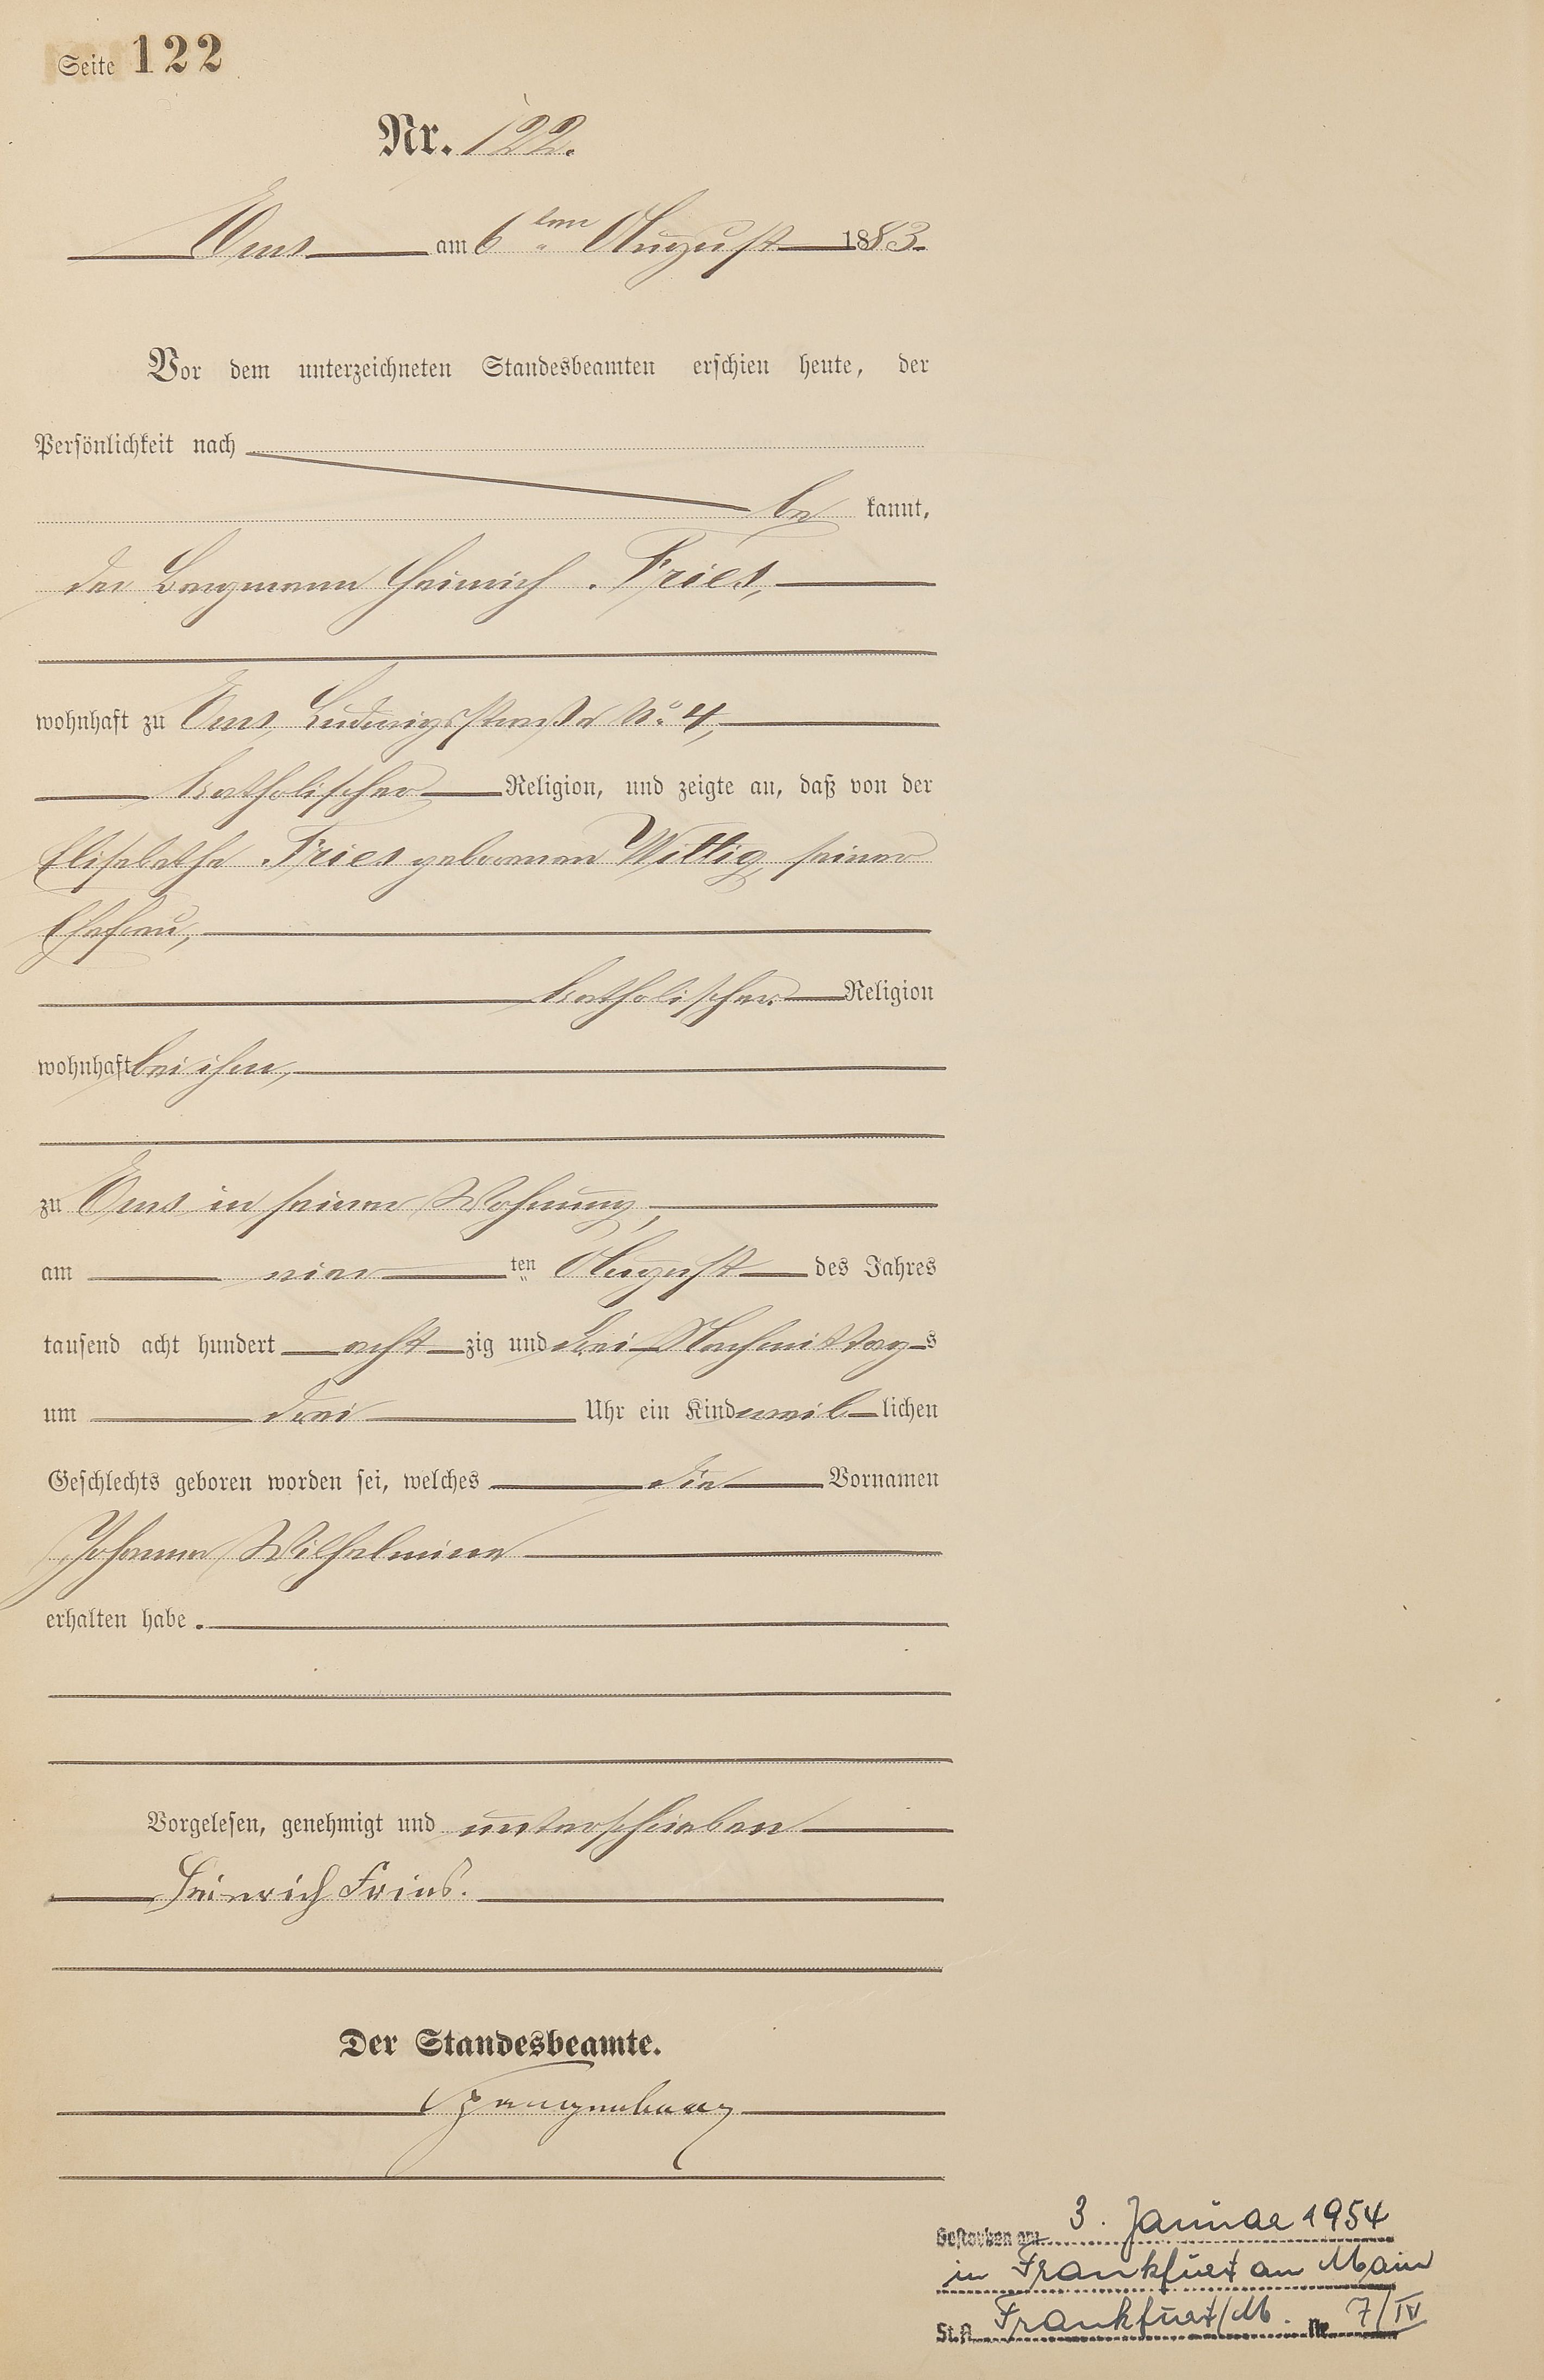 Seite 122
Nr. 122.
Ems am 6ten August 1883.
Vor dem unterzeichneten Standesbeamten erschien heute, der
Persönlichkeit nach
be kannt,
der Bergmann Heinrich Fries,
wohnhaft zu Ems, Ludwigsstraße No 4,
katholischer Religion, und zeigte an, daß von der
Elisabetha Fries geborenen Wittig, seiner
Ehefrau,
katholischer Religion
wohnhaft bei ihm,
zu Ems in seiner Wohnung,
am vier ten August des Jahres
tausend acht hundert acht zig und drei Nachmittag s
um drei Uhr ein Kind weib lichen
Geschlechts geboren worden sei, welches die Vornamen
Johanna Wilhelmine
erhalten habe.
Vorgelesen, genehmigt und unterschrieben
Heinrich Fries.
Der Standesbeamte.
Spangenberg
Gestorben am 3. Januar 1954
in Frankfurt am Main
St.A. Frankfurt/M. Nr. 7/IV